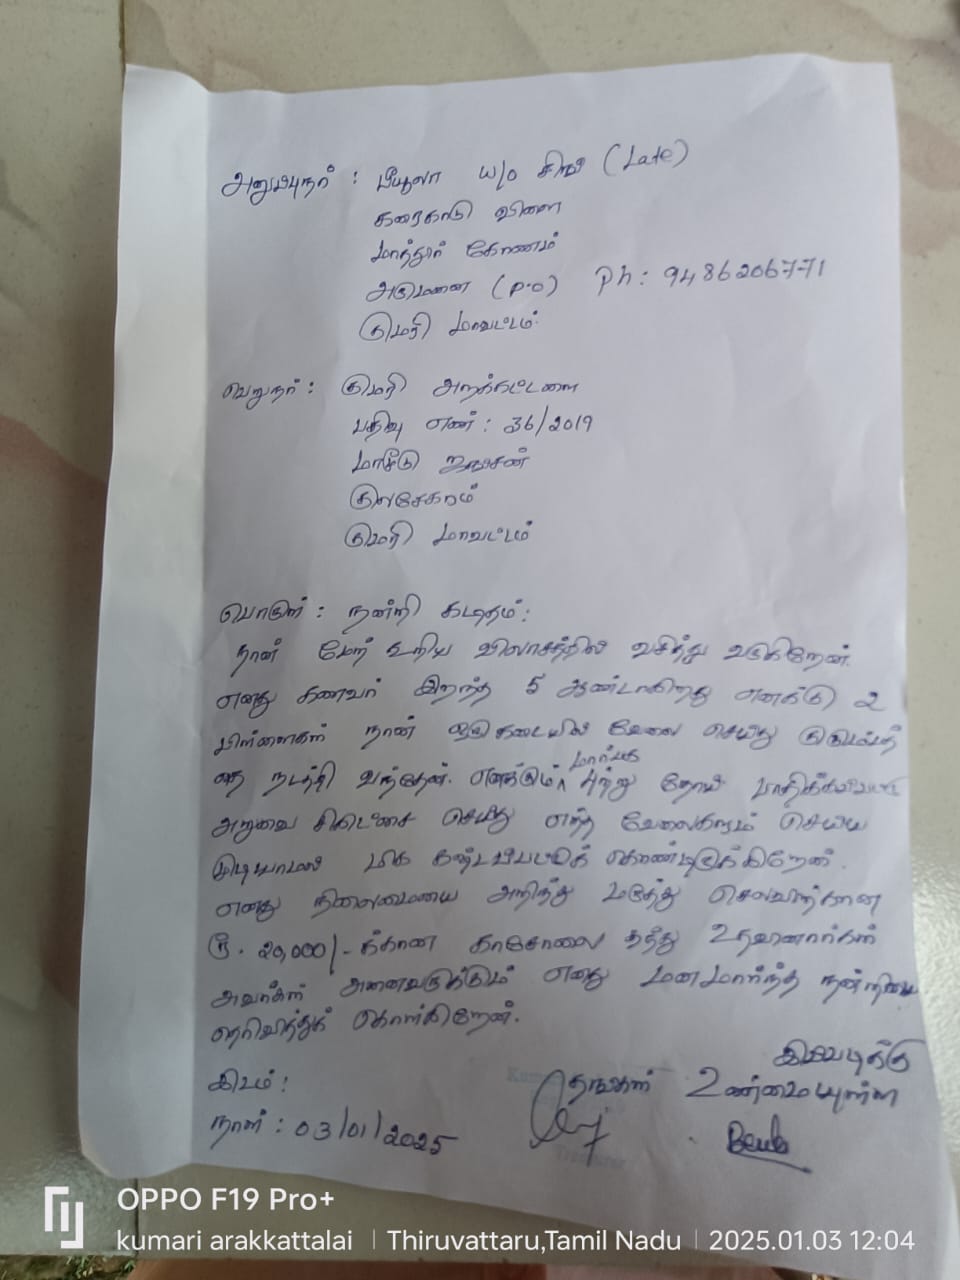 அனுப்புநர் : பியூலா W/o சிங் (Late)
கரைகாடு விளை
மாத்தூர் கோணம்
அருமனை (P.O) Ph: 9486206771
குமரி மாவட்டம்.
பெறுநர் : குமரி அறக்கட்டளை
பதிவு எண் : 36/2019
மார்சீடு ஜங்சன்
குலசேகரம்
குமரி மாவட்டம்
பொருள் : நன்றி கடிதம் :
நான் மேற் கூறிய விலாசத்தில் வசித்து வருகிறேன்.
எனது கணவர் இறந்து 5 ஆண்டாகிறது எனக்கு 2
பிள்ளைகள் நான் ஒரு கடையில் வேலை செய்து குடும்பத்
தை நடத்தி வந்தேன். எனக்கும் மார்பக புற்று நோய் பாதிக்கப்பட்டு
அறுவை சிகிட்சை செய்து எந்த வேலைகளும் செய்ய
முடியாமல் மிக கஷ்டப்பட்டுக் கொண்டிருக்கிறேன்.
எனது நிலைமையை அறிந்து மருத்து செலவிற்கான
ரூ. 20,000/- க்கான காசோலை தந்து உதவினார்கள்
அவர்கள் அனைவருக்கும் எனது மனமார்ந்த நன்றியை
தெரிவித்துக் கொள்கிறேன்.
இப்படிக்கு
இடம் : தங்கள் உண்மையுள்ள
நாள் : 03/01/2025 Beula
OPPO F19 Pro+
kumari arakkattalai | Thiruvattaru,Tamil Nadu | 2025.01.03 12:04